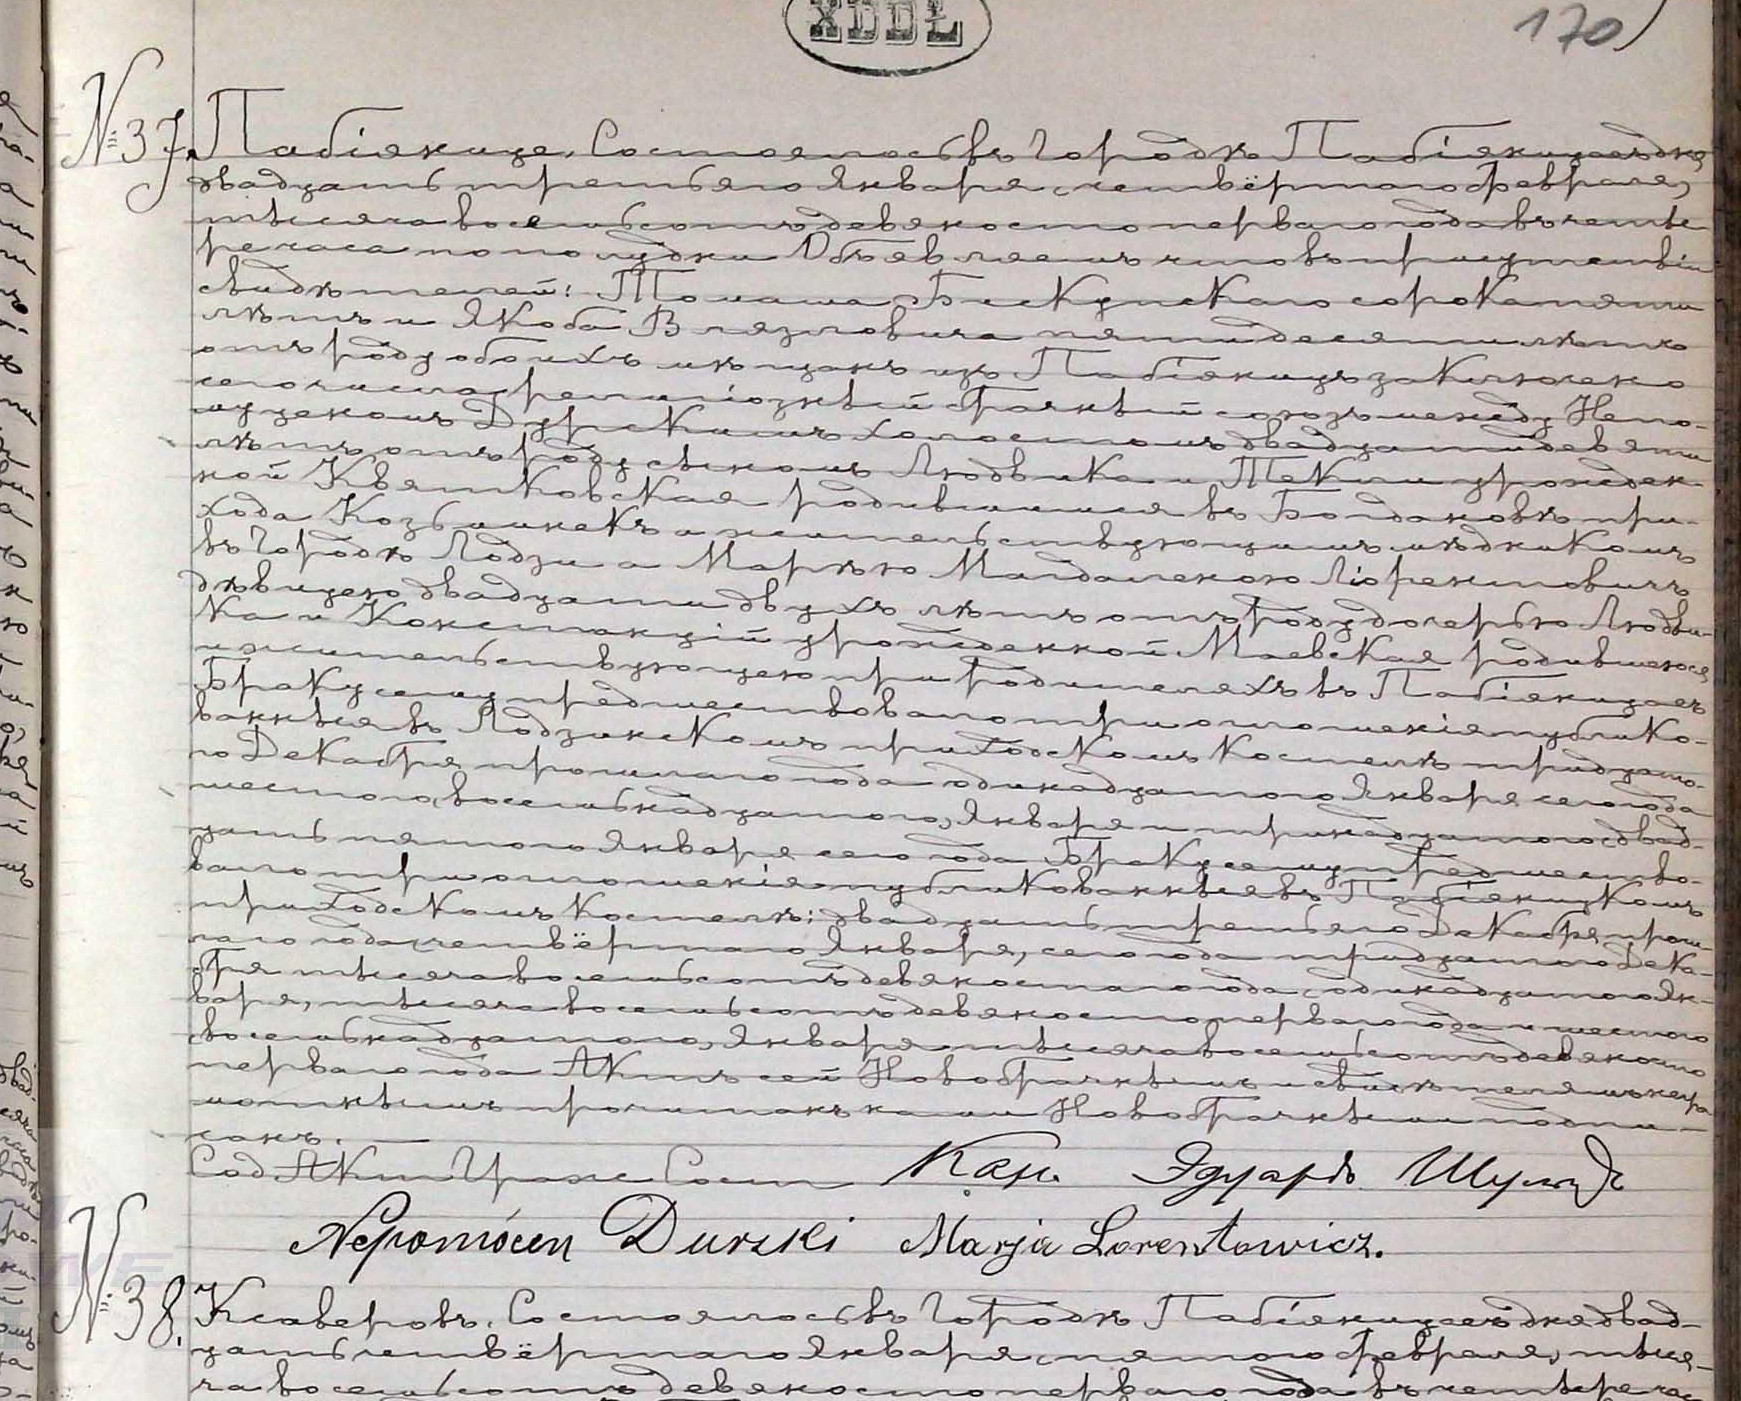 XDDŁ
170
№ 37. Пабіянице. Состоялось въ Городѣ Пабіяницахъ дня
двадцать третьяго Января, четвёртаго февраля,
тысяча восемьсотъ девяносто перваго года въ четы
ре часа по полудни Объявляемъ что въ присутствіи
свидѣтелей: Томаша Бискупскаго сорока пяти
лѣтъ и Якоба Влязловича пятидесяти лѣтъ
отъ роду обоихъ мѣщанъ изъ Пабіяницъ заключено
сего числа религіозный брачный союзъ между Непо-
муценомъ Дурскимъ холостымъ двадцати девяти
лѣтъ отъ роду сыномъ Людвика и Текли урожден-
ной Квятковская родившимся въ Богдановѣ при-
хода Козьминекъ а жительствующимъ мѣдникомъ
въ Городѣ Лодзи а Марыею Магдаленою Ліорентовичъ
дѣвицею двадцати двухъ лѣтъ отъ роду дочерью Людви-
ка и Констанцій урожденной Маевская родившеюся
и жительствующею при родителяхъ въ Пабіяницахъ
Браку сему предшествовало три оглашенія публико-
ванныя въ Лодзинскомъ приходскомъ Костелѣ тридцата-
го Декабря прошлаго года одинадцатаго Января сего года
шестаго, восемьнадцатаго, Января и тринадцатаго двад-
цать пятаго Января сего года Браку сему предшество-
вало три оглашенія публикованныя въ Пабіяницкомъ
приходскомъ Костелѣ: двадцать третьяго Декабря прош-
лаго года четвёртаго Января, сего года тридцатаго Дека-
бря тысяча восемьсотъ девяностаго года одинадцатаго Ян-
варя, тысяча восемьсотъ девяносто перваго года и шестаго
восемьнадцатаго, Января тысяча восемьсотъ девяносто
перваго года Актъ сей Новобрачнымъ и свидѣтелямъ негра
мотнымъ прочитанъ нами Новобрачными подпи-
санъ.
Сод Акт Граж Сост Кан. Эдуардъ Шульц
Nepomócen Durski Marja Lorentowicz.
№ 38. Ксаверовъ. Состоялось въ Городѣ Пабіяницахъ дня двад-
цать четвёртаго Января, пятаго февраля, тыся-
ча восемьсотъ девяносто перваго года въ четыре час